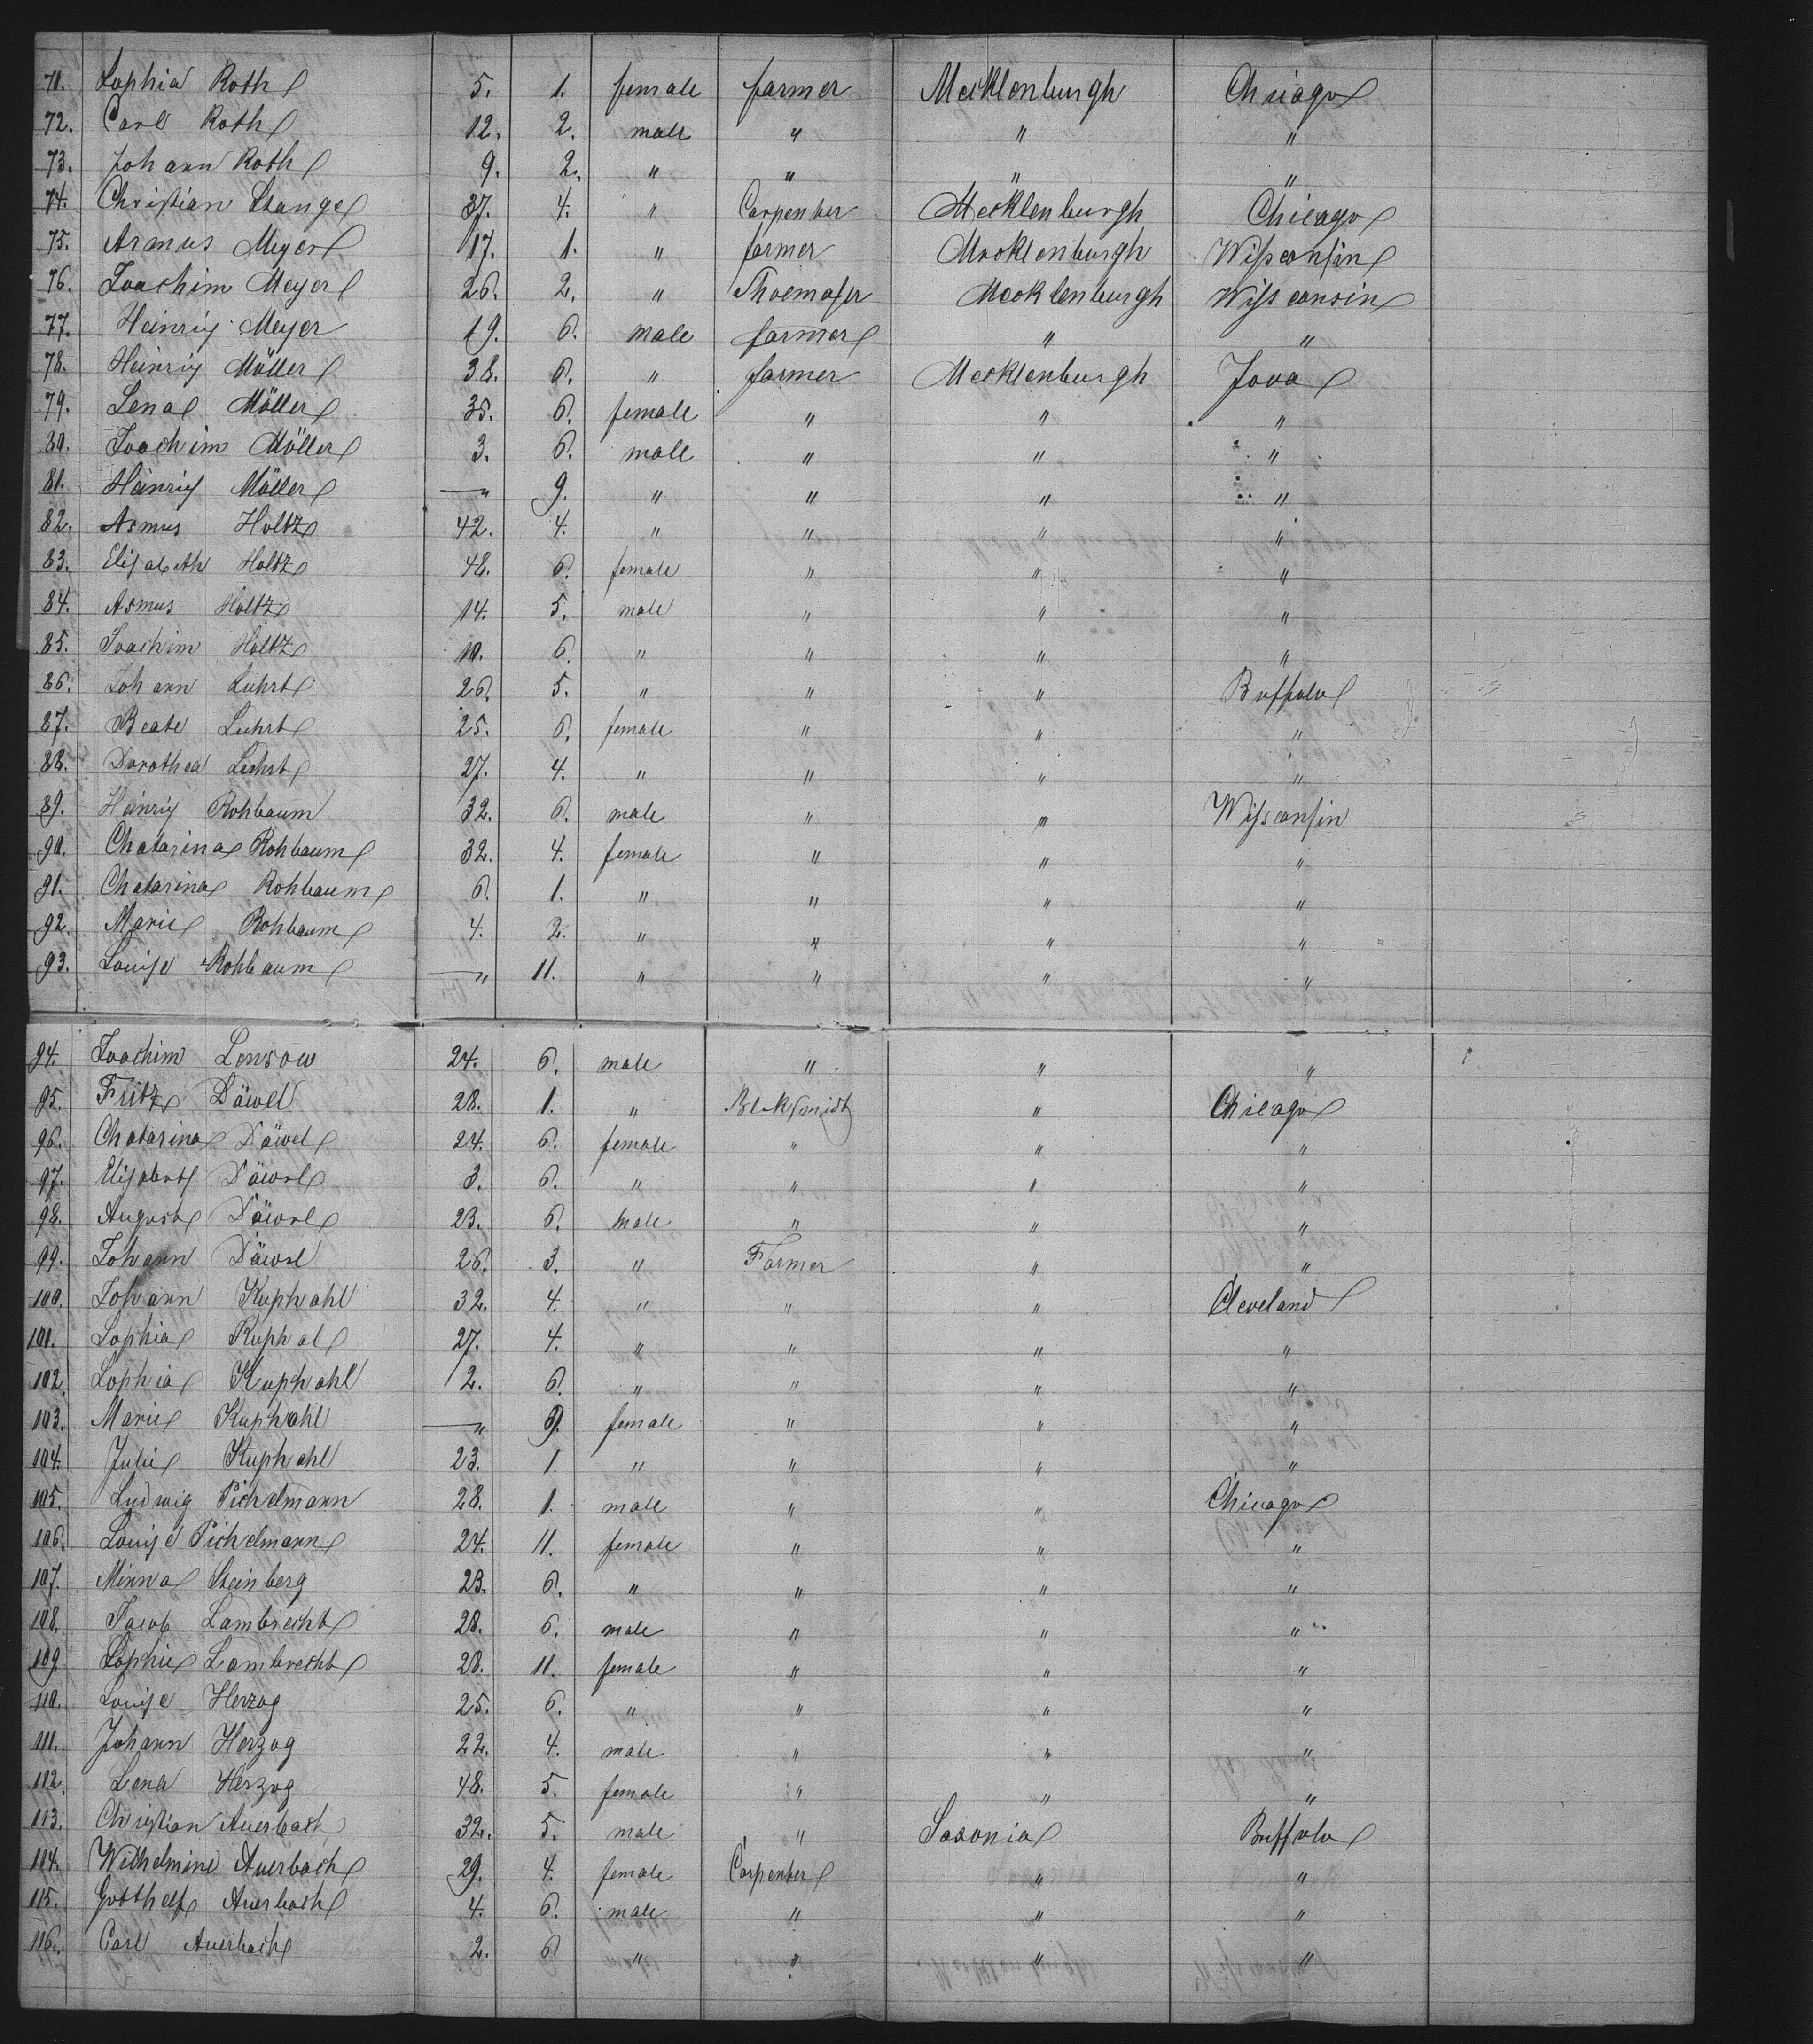 71. Sophia Roth 5. 1. female farmer Mecklenburgh Chicago
72. Carl Roth 12. 2. male " " "
73. Johann Roth 9. 2. " " " "
74. Christian Stange 37. 4. " Carpenter Mecklenburgh Chicago
75. Asmus Meyer 17. 1. " farmer Mecklenburgh Wissconsin
76. Joachim Meyer 26. 2. " Mecklenburgh Wissconsin
77. Heinrig Meyer 19. 6. male farmer " "
78. Heinrig Möller 38. 6. " farmer Mecklenburgh Jova
79. Lena Möller 35. 6. female " " "
80. Joachim Möller 3. 6. male " " "
81. Heinrig Möller —" 9. " " " "
82. Asmus Holtz 42. 4. " " " "
83. Elisabeth Holtz 48. 6. female " " "
84. Asmus Holtz 14. 5. male " " "
85. Joachim Holtz 10. 6. " " " "
86. Johann Luhrt 26. 5. " " " Buffalo
87. Beate Luhrt 25. 6. female " " "
88. Dorothea Luhrt 27. 4. " " " "
89. Heinrig Rohbaum 32. 6. male " " Wissconsin
90. Chatarina Rohbaum 32. 4. female " " "
91. Chatarina Rohbaum 6. 1. " " " "
92. Marie Rohbaum 4. 2. " " " "
93. Louise Rohbaum —" 11. " " " "
94. Joachim Lensow 24. 6. male " " "
95. Fritz Däwel 28. 1. " Blaksmidt " Chicago
96. Chatarina Däwel 24. 6. female " " "
97. Däwel 3. 6. " " " "
98. August Däwel 23. 6. male " " "
99. Johann Däwel 26. 3. " Farmer " "
100. Johann Kuphahl 32. 4. " " " Cleveland
101. Sophia Kuphal 27. 4. " " " "
102. Sophia Kuphahl 2. 6. " " " "
103. Marie Kuphahl —" 9. female " " "
104. Julie Kuphahl 23. 1. " " " "
105. Ludwig Pichelmann 28. 1. male " " Chicago
106. Louise Pichelmann 24. 11. female " " "
107. Minna Steinberg 23. 6. " " " "
108. Jacob Lambrecht 28. 6. male " " "
109. Sophie Lambrecht 28. 11. female " " "
110. Louise Herzog 25. 6. " " " "
111. Johann Herzog 22. 4. male " " "
112. Lena Herzog 48. 5. female " " "
113. Christian Auerbach 32. 5. male " Saxonia Buffalo
114. Wilhelmine Auerbach 29. 4. female Carpenter " "
115. Gotthelf Auerbach 4. 6. male " " "
116. Carl Auerbach 2. 6 " " " "